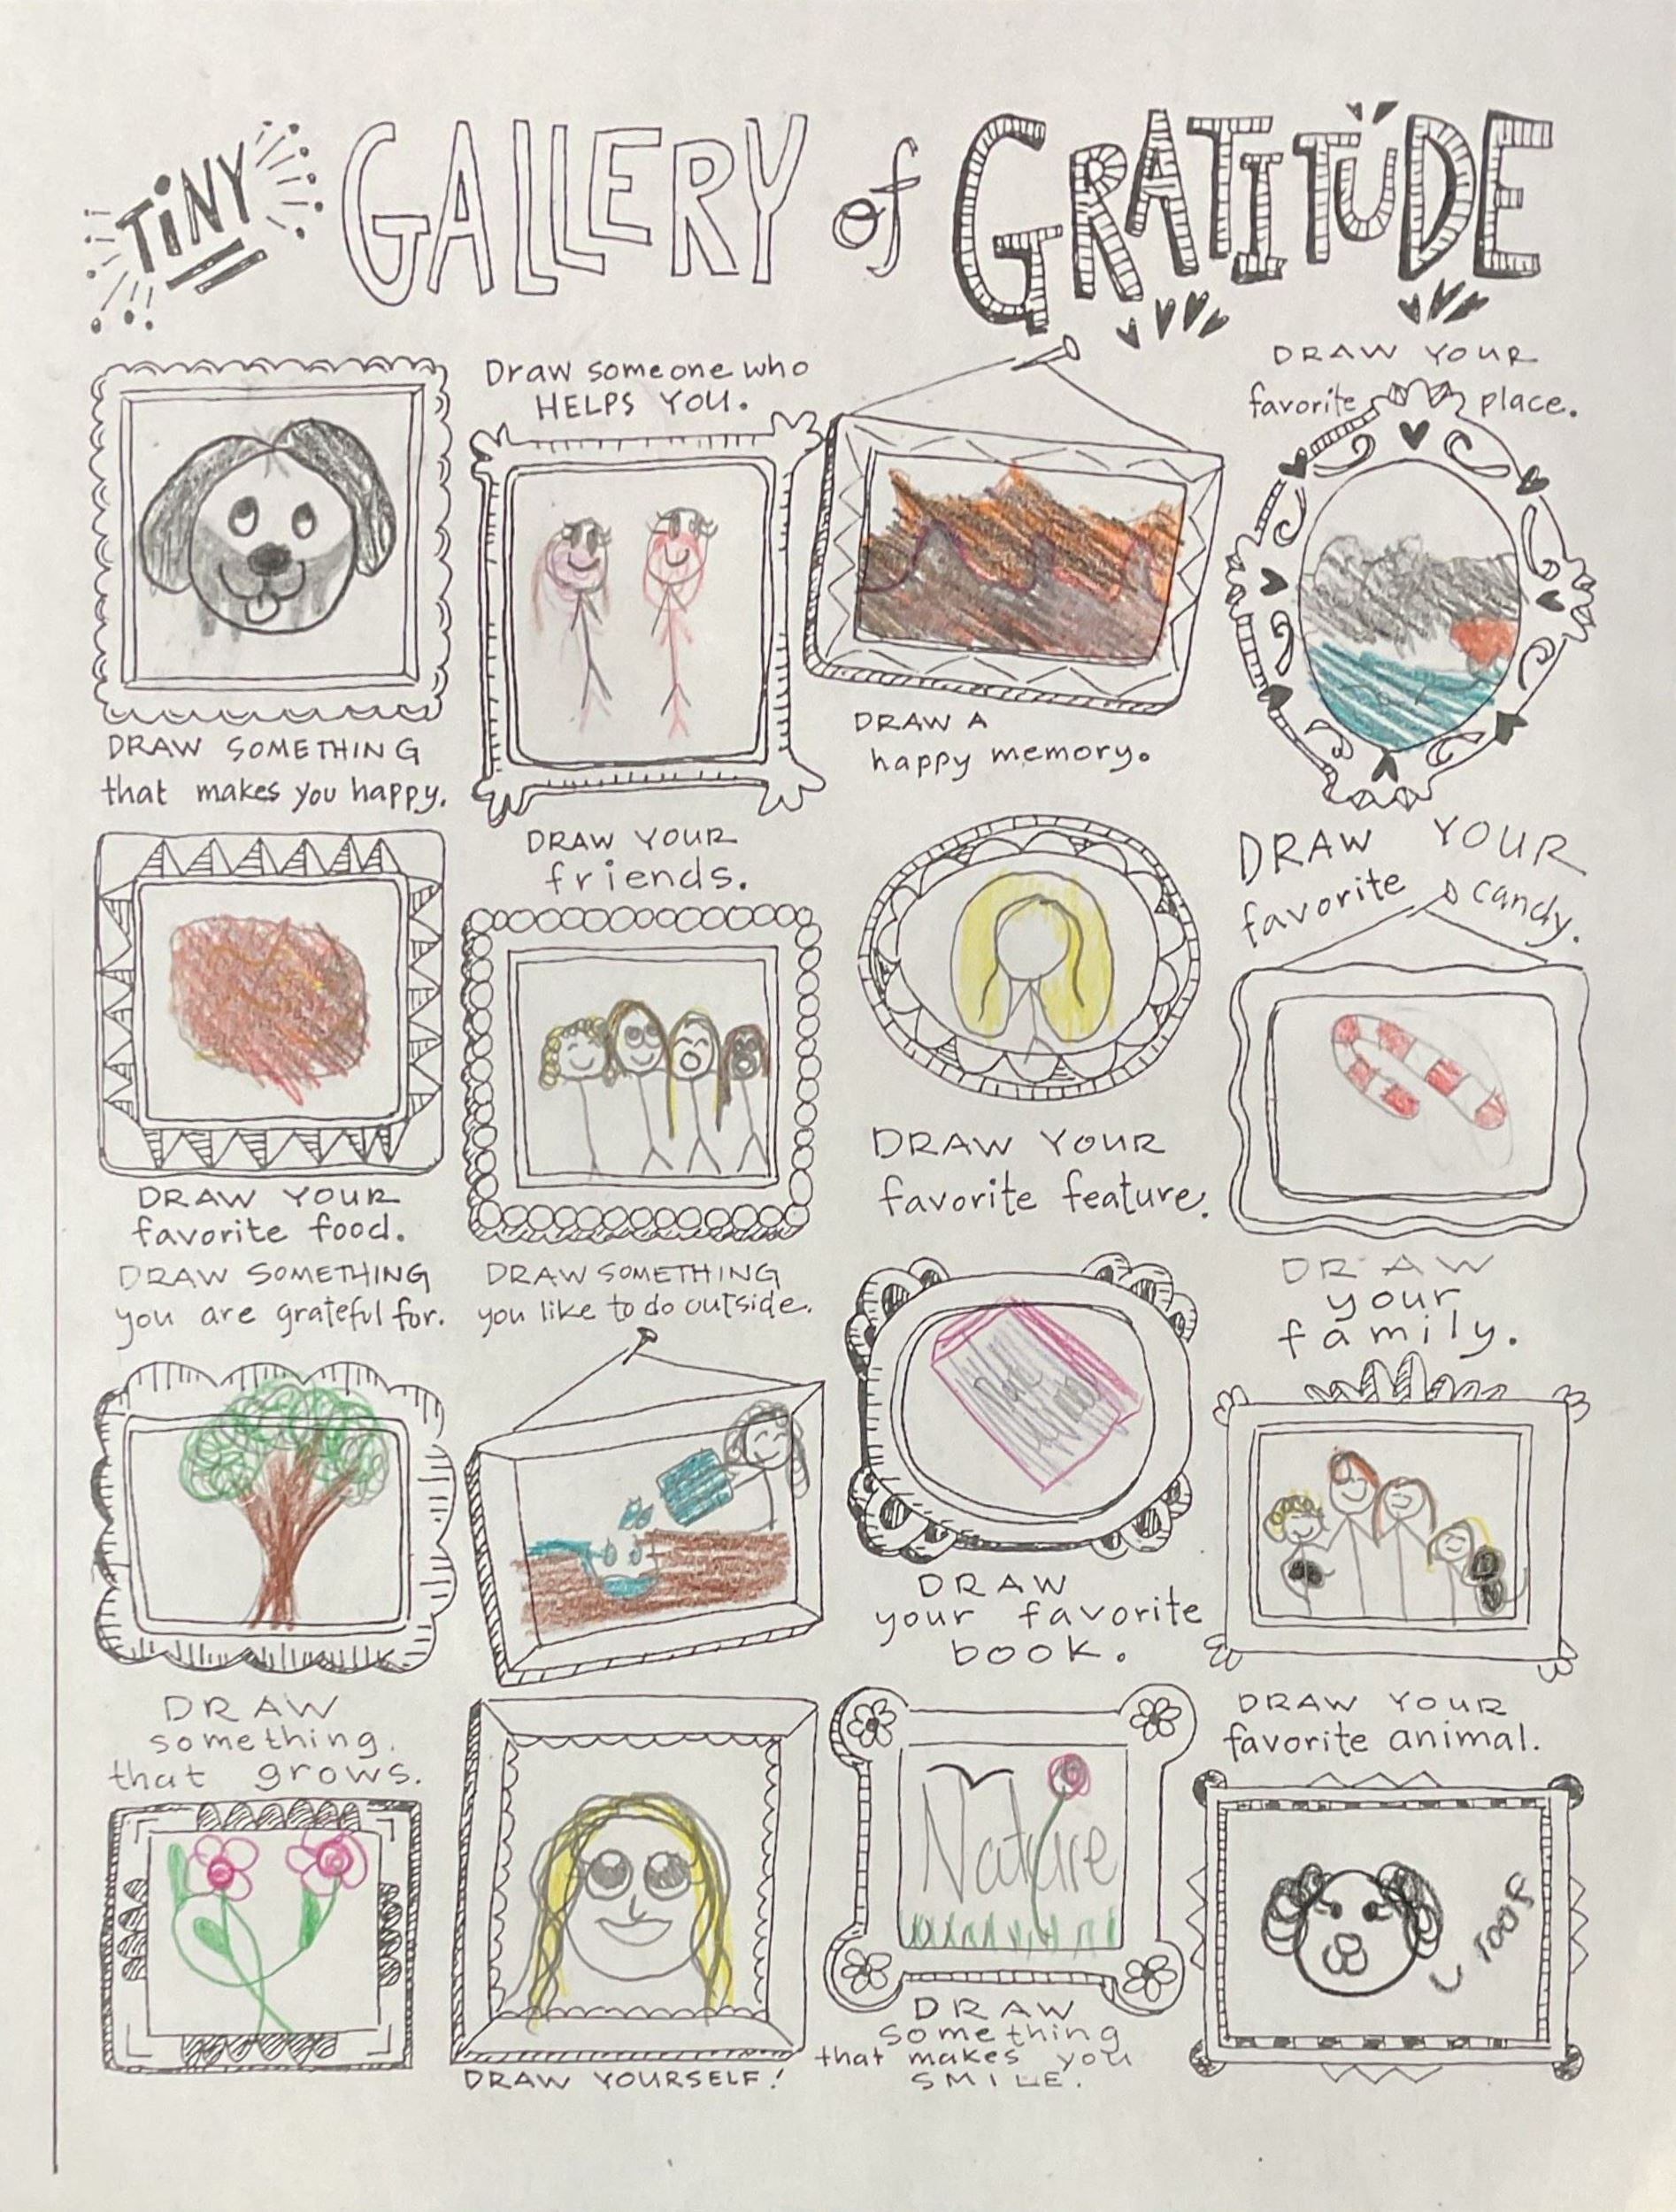 TiNY GALLERY of GRATITUDE
DRAW SOMETHING
that makes you happy.
Draw someone who
HELPS YOU.
DRAW A
happy memory.
DRAW YOUR
favorite place.
DRAW YOUR
favorite food.
DRAW YOUR
friends.
DRAW YOUR
favorite feature.
DRAW YOUR
favorite candy.
DRAW SOMETHING
you are grateful for.
DRAW SOMETHING
you like to do outside.
DRAW
your favorite
book.
DRAW
your
family.
DRAW
something
that grows.
DRAW YOURSELF!
Nature
DRAW
something
that makes you
SMILE.
DRAW YOUR
favorite animal.